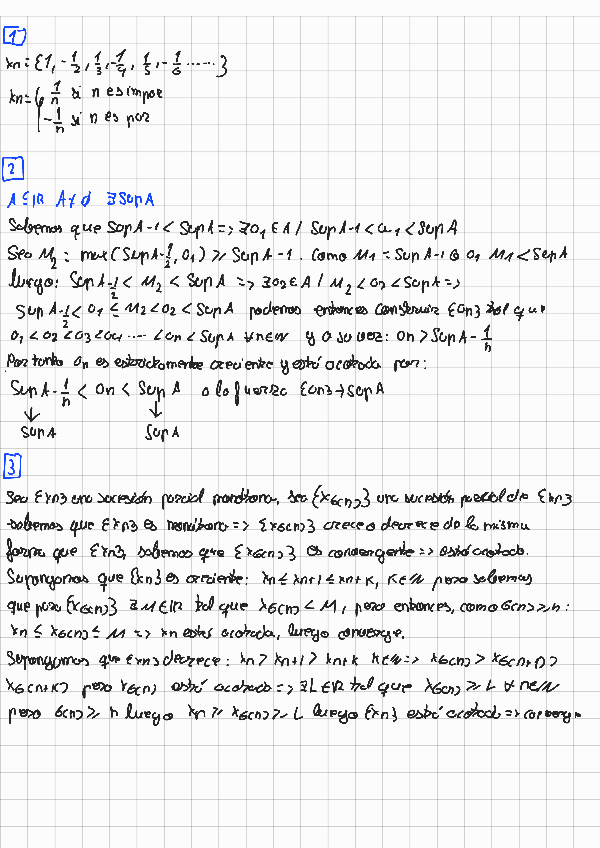 1
xn = {1, -1/2, 1/3, -1/4, 1/5, -1/6 ......}
xn = { 1/n si n es impar
-1/n si n es par
2
A ⊆ ℝ A ≠ ∅ ∄ Sup A
Sabemos que Sup A - 1 < Sup A => ∃ a₁ ∈ A / Sup A - 1 < a₁ < Sup A
Sea M₂ : max(Sup A - 1/2, a₁) ≥ Sup A - 1. Como M₁ = Sup A - 1 o a₁ M₁ < Sup A
luego: Sup A - 1/2 < M₂ < Sup A => ∃ a₂ ∈ A / M₂ < a₂ < Sup A =>
Sup A - 1/2 < a₁ ≤ M₂ < a₂ < Sup A podemos entonces construir {an} tal que
a₁ < a₂ < a₃ < a₄ ..... < an < Sup A ∀n∈ℕ y a su vez: an > Sup A - 1/n
Por tanto an es estrictamente creciente y está acotada por:
Sup A - 1/n < an < Sup A a la fuerza {an} → Sup A
↓ ↓
Sup A Sup A
3
Sea {xn} una sucesión parcial monótona, sea {xσ(n)} una sucesión parcial de {xn}
sabemos que {xn} es monótona => {xσ(n)} crece o decrece de la misma
forma que {xn}, sabemos que {xσ(n)} es convergente => está acotada.
Supongamos que {xn} es creciente: xn ≤ xn+1 ≤ xn+k, k∈ℕ pero sabemos
que para {xσ(n)} ∃ M∈ℝ tal que xσ(n) ≤ M, pero entonces, como σ(n) ≥ n:
xn ≤ xσ(n) ≤ M => xn está acotada, luego converge.
Supongamos que {xn} decrece: xn > xn+1 > xn+k k∈ℕ => xσ(n) > xσ(n+1) >
xσ(n+k) pero xσ(n) está acotada => ∃ L∈ℝ tal que xσ(n) ≥ L ∀ n∈ℕ
pero σ(n) ≥ n luego xn ≥ xσ(n) ≥ L luego {xn} está acotada => converge